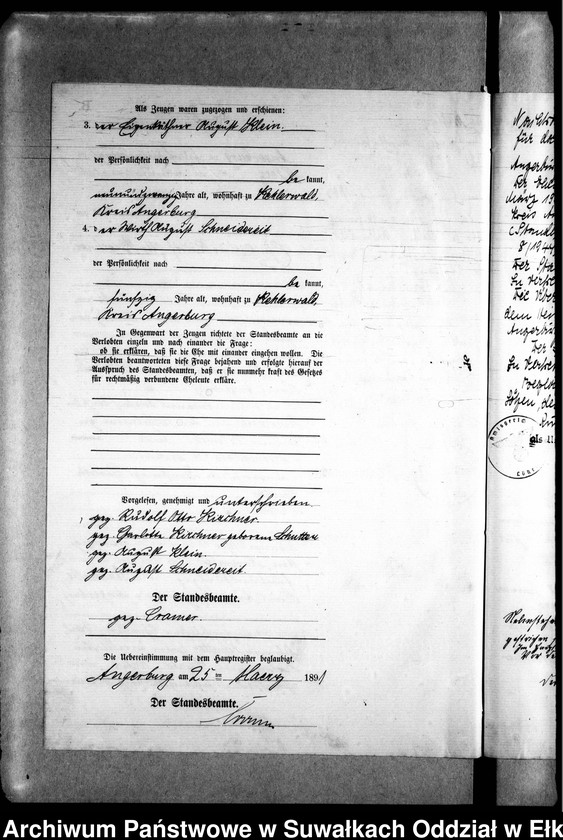 Als Zeugen waren zugezogen und erschienen:
3. der Eigenkäthner August Klein.
der Persönlichkeit nach
be kannt,
neunundzwanzig Jahre alt, wohnhaft zu Kehlerwald,
Kreis Angerburg
4. der Wirth August Schneidereit
der Persönlichkeit nach
be kannt,
fünfzig Jahre alt, wohnhaft zu Kehlerwald,
Kreis Angerburg
In Gegenwart der Zeugen richtete der Standesbeamte an die
Verlobten einzeln und nach einander die Frage:
ob sie erklären, daß sie die Ehe mit einander eingehen wollen. Die
Verlobten beantworteten diese Frage bejahend und erfolgte hierauf der
Ausspruch des Standesbeamten, daß er sie nunmehr kraft des Gesetzes
für rechtmäßig verbundene Eheleute erkläre.
Vorgelesen, genehmigt und unterschrieben
gez. Rudolf Otto Kirchner.
gez. Charlotte Kirchner geborene
gez. August Klein.
gez. August Schneidereit.
Der Standesbeamte.
gez. Cramer.
Die Uebereinstimmung mit dem Hauptregister beglaubigt.
Angerburg am 25 ten Maerz 1891
Der Standesbeamte.
Cramer
für
Angerbu
März 19
8/194
Der Sta
Angerbu
als
Archiwum Państwowe w Suwałkach Oddział w Ełk